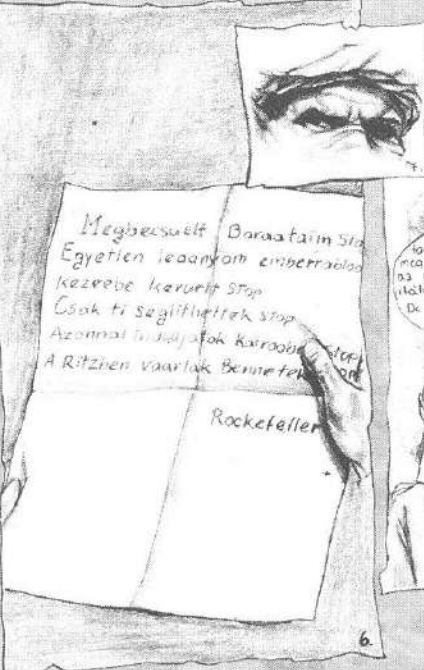 7.
Megbecsuelt Baraataim Sto
Egyetlen leaanyom emberrabloo
kezeebe keruelt STOP
Csak ti segiithettek STOP
Azonnal induljatok Kairooba STOP
A Ritzben vaarlak Bennetek
Rockefeller
6.